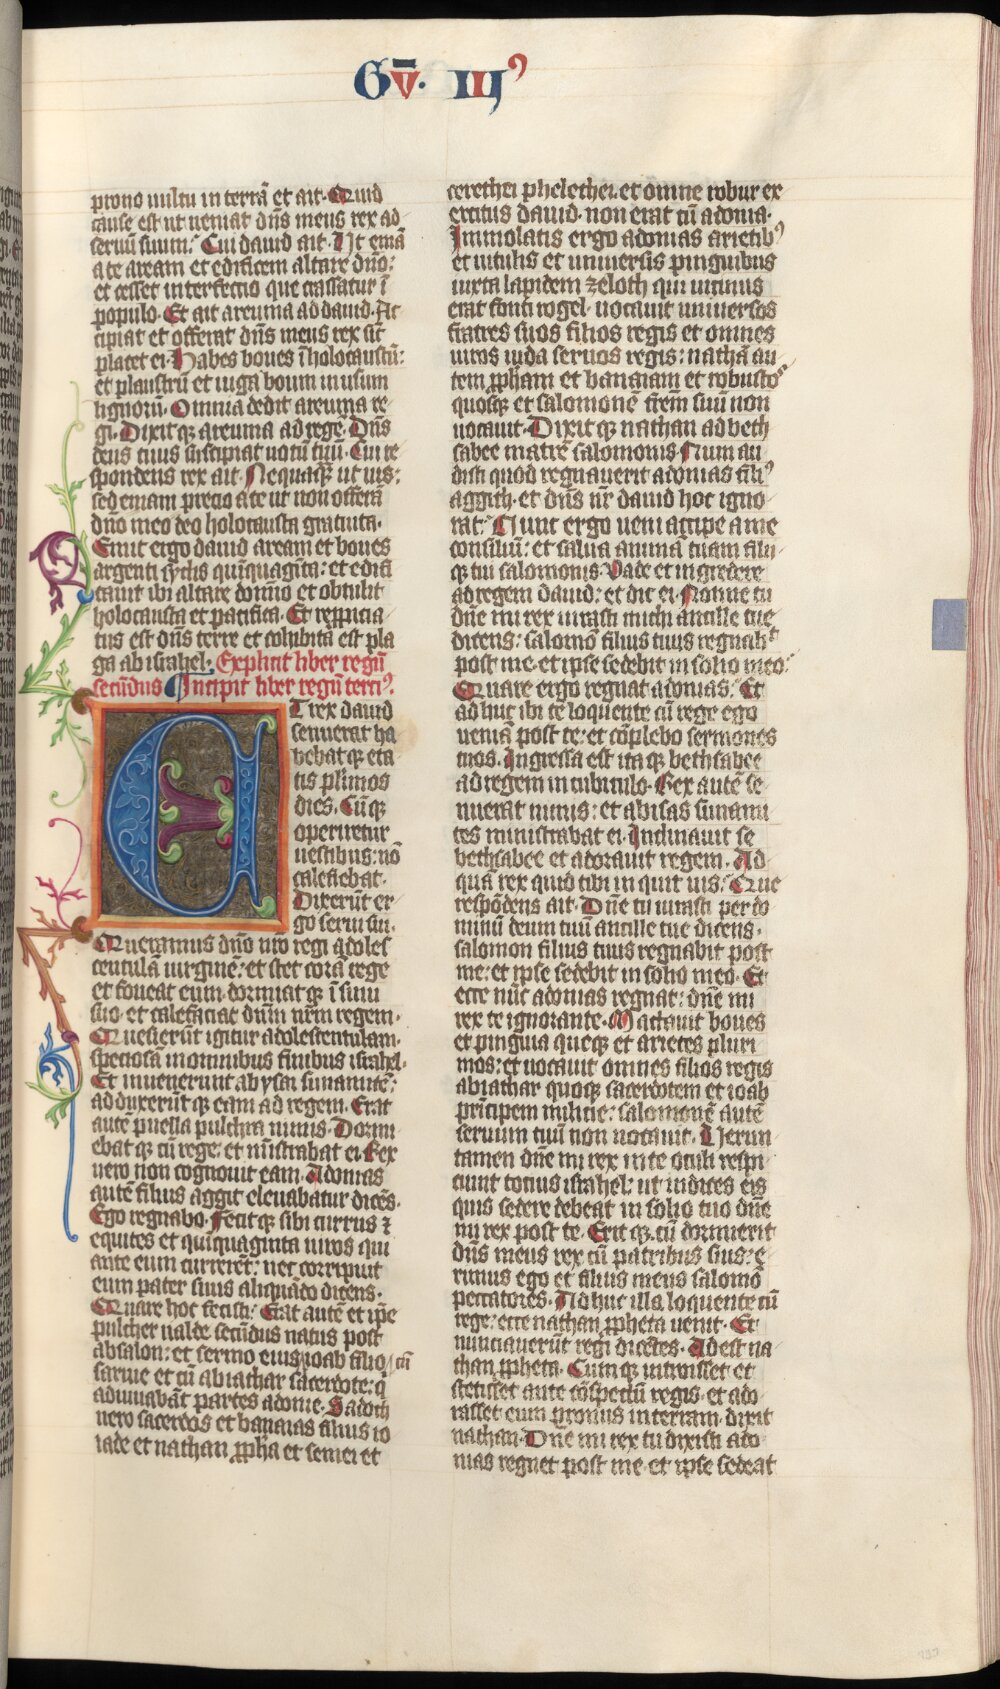 Gv̄. IIIꝰ
prono uultu in terrā et ait. Quid
cause est ut ueniat dn̄s meus rex ad
seruū suum. Cui dauid ait. Ut emā
a te aream et edificem altare dn̄o:
et cesset interfectio que crassatur ī
populo. Et ait areuma ad dauid. Ac
cipiat et offerat dn̄s meus rex sic̄
placet ei. Habes boues ī holocaustū:
et plaustrū et iuga boum in usum
lignorū. Omnia dedit areuma re
gi. Dixitqꝫ areuma ad regē. Dn̄s
deus tuus suscipiat uotū tuū. Cui re
spondens rex ait. Nequaqꝫ ut uis:
sed emam precio a te ut non offerā
dn̄o meo deo holocausta gratuita.
Emit ergo dauid aream et boues
argenti syclis quīquagīta: et edifi
cauit ibi altare domīo et obtulit
holocausta et pacifica. Et reppicia
tus est dn̄s terre et cohibita est pla
ga ab israhel. Explicit liber regū
secūdus Incipit liber regū terciꝰ.
ET rex dauid
senuerat ha
bebatqꝫ eta
tis plīmos
dies. Cūqꝫ
operiretur
uestibus: nō
calefiebat.
Dixerūt er
go serui sui.
Queramus dn̄o nr̄o regi adoles
centulā uirginē: et stet corā rege
et foueat eum. dormiatqꝫ ī sinu
suo et calefaciat dn̄m nr̄m regem.
Quesierūt igitur adolescentulam
speciosā in omnibus finibus israhel.
Et inuenerunt abysac sunamitē:
adduxerūtqꝫ eam ad regem. Erat
autē puella pulchra nimis. Dormi
ebatqꝫ cū rege: et mīstrabat ei. Rex
uero non cognouit eam. Adonias
autē filius aggit eleuabatur dicēs.
Ego regnabo. Fecitqꝫ sibi currus ⁊
equites et quīquaginta uiros qui
ante eum currerēt: nec corripuit
eum pater suus aliquādo dicens.
Quare hoc fecisti. Erat autē et ip̄e
pulcher ualde secūdus natus post
absalon: et sermo eius ioab filio / cū
saruie et cū abiathar sacerdote: q̄
adiuuabāt partes adonie. Sadoch
uero sacerdos et banaias filius io
iade et nathan ꝓph̄a et semei et
cerethei phelethei. et omne robur ex
ercitus dauid. non erat cū adonia.
Immolatis ergo adonias arietibꝰ
et uitulis et uniuersis pinguibus
iuxta lapidem zeloth qui uicinus
erat fonti rogel. uocauit uniuersos
fratres suos filios regis et omnes
uiros iuda seruos regis: nathā au
tem ꝓpham et banaiam et robustoˢ
quosqꝫ et salomonē fr̄em suū non
uocauit. Dixitqꝫ nathan ad beth
sabee matrē salomonis. Num au
disti quod regnauerit adonias filiꝰ
aggith. et dn̄s nr̄ dauid hoc igno
rat. Nunc ergo ueni accipe a me
consiliū: et salua animā tuam filii
qꝫ tui salomonis. Uade et ingredere
ad regem dauid: et dic ei. Nonne tu
dn̄e mi rex iurasti michi ancille tue
dicens: salomō filius tuus regnabᵗ
post me. et ipse sedebit in solio meo.
Quare ergo regnat adonias. Et
adhuc ibi te loquente cū rege ego
ueniā post te: et cōplebo sermones
tuos. Ingressa est itaqꝫ bethsabee
ad regem in cubiculo. Rex autē se
nuerat nimis: et abisas sunami
tes ministrabat ei. Inclinauit se
bethsabee et adorauit regem. Ad
quā rex quid tibi inquit uis. Que
respōdens ait. Dn̄e tu iurasti per do
minū deum tuū ancille tue dicens.
salomon filius tuus regnabit post
me: et ipse sedebit in solio meo. Et
ecce nūc adonias regnat: dn̄e mi
rex te ignorante. Mactauit boues
et pinguia queqꝫ et arietes pluri
mos: et uocauit omnes filios regis
abiathar quoqꝫ sacerdotem et ioab
prīcipem militie: salomonē autē
seruum tuū non uocauit. Uerun
tamen dn̄e mi rex in te oculi respi
ciunt totius israhel: ut indices eis
quis sedere debeat in solio tuo dn̄e
mi rex post te. Eritqꝫ cū dormierit
dn̄s meus rex cū patribus suis: e
rimus ego et filius meus salomō
peccatores. Adhuc illa loquente cū
rege: ecce nathan ꝓpheta uenit. Et
nunciauerūt regi dicētes. Adest na
than ꝓpheta. Cumqꝫ introisset et
stetisset ante cōspectū regis. et ado
rasset eum pronus in terram. dixit
nathan. Dn̄e mi rex tu dixisti ado
nias regnet post me. et ipse sedeat